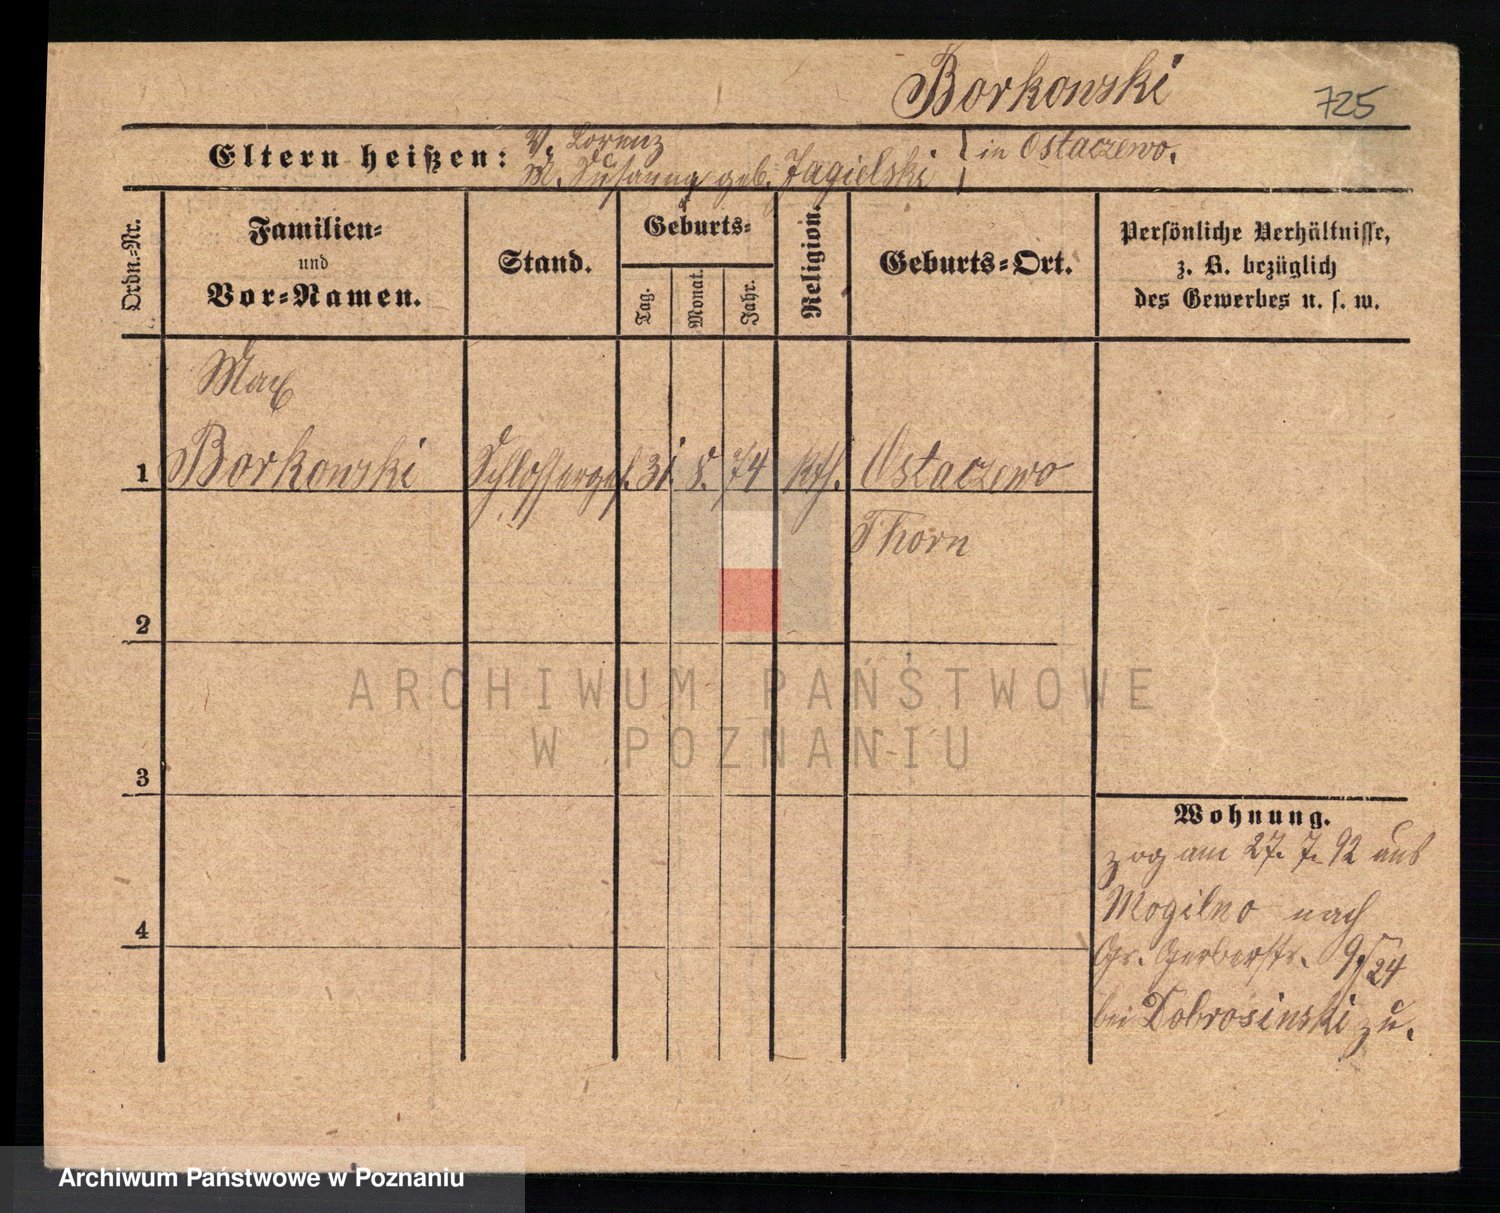 Borkowski
725
Eltern heißen:
V. Lorenz
M. Susanna geb. Jagielski
in Ostaczewo.
Ordn.-Nr.
Familien-
und
Vor-Namen.
Stand.
Geburts-
Tag.
Monat.
Jahr.
Religion.
Geburts-Ort.
Persönliche Verhältnisse,
z. B. bezüglich
des Gewerbes u. s. w.
Max
1 Borkowski Schlosserges. 31. 8. 74 kth. Ostaczewo
Thorn
2
3
4
Wohnung.
zog am 27. 7. 92 aus
Mogilno nach
Gr. Gerberstr. 9/24
bei Dobrosinski zu.
ARCHIWUM PAŃSTWOWE
W POZNANIU
Archiwum Państwowe w Poznaniu